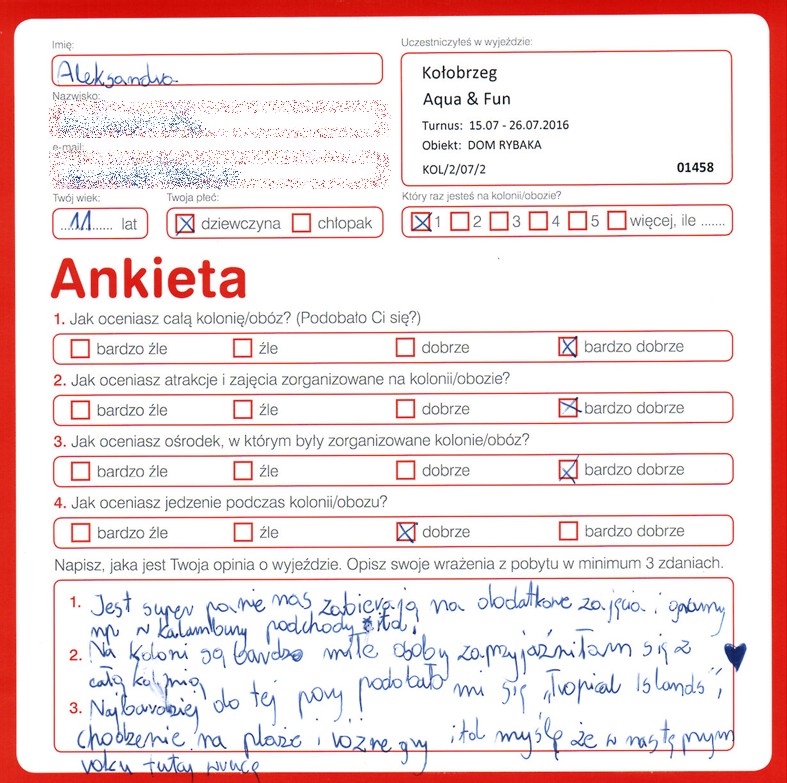 Imię:
Uczestniczyłeś w wyjeździe:
Aleksandra
Kołobrzeg
Nazwisko:
Aqua & Fun
Turnus: 15.07 - 26.07.2016
e-mail:
Obiekt: DOM RYBAKA
KOL/2/07/2 01458
Twój wiek: Twoja płeć: Który raz jesteś na kolonii/obozie?
...11...... lat dziewczyna chłopak 1 2 3 4 5 więcej, ile .......
Ankieta
1. Jak oceniasz całą kolonię/obóz? (Podobało Ci się?)
bardzo źle źle dobrze bardzo dobrze
2. Jak oceniasz atrakcje i zajęcia zorganizowane na kolonii/obozie?
bardzo źle źle dobrze bardzo dobrze
3. Jak oceniasz ośrodek, w którym były zorganizowane kolonie/obóz?
bardzo źle źle dobrze bardzo dobrze
4. Jak oceniasz jedzenie podczas kolonii/obozu?
bardzo źle źle dobrze bardzo dobrze
Napisz, jaka jest Twoja opinia o wyjeździe. Opisz swoje wrażenia z pobytu w minimum 3 zdaniach.
1. Jest super panie nas zabierają na dodatkowe zajęcia i gramy
np w kalambury podchody itd.
2. Na koloni są bardzo miłe osoby zaprzyjaźniłam się z
całą kolonią
3. Najbardziej do tej pory podobało mi się „Tropical Islands”,
chodzenie na plaże i różne gry itd myślę że w następnym
roku tutaj wrócę